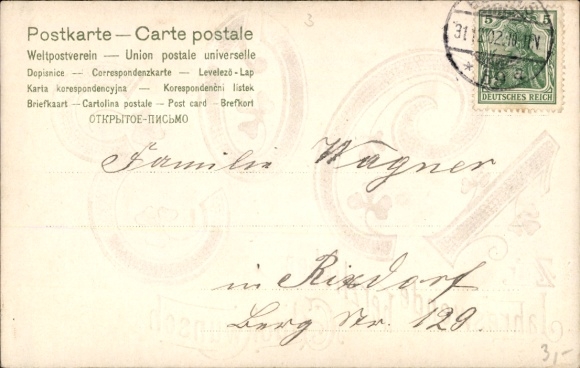 3
Postkarte — Carte postale
Weltpostverein — Union postale universelle
Dopisnice. — Correspondenzkarte — Levelező-Lap
Karta korespondencyjna — Korespondenčni listek
Briefkaart — Cartolina postale — Post card — Brefkort
ОТКРЫТОЕ-ПИСЬМО
5 5
DEUTSCHES REICH
Familie Wagner
in Rixdorf
Berg Str. 129.
3,-